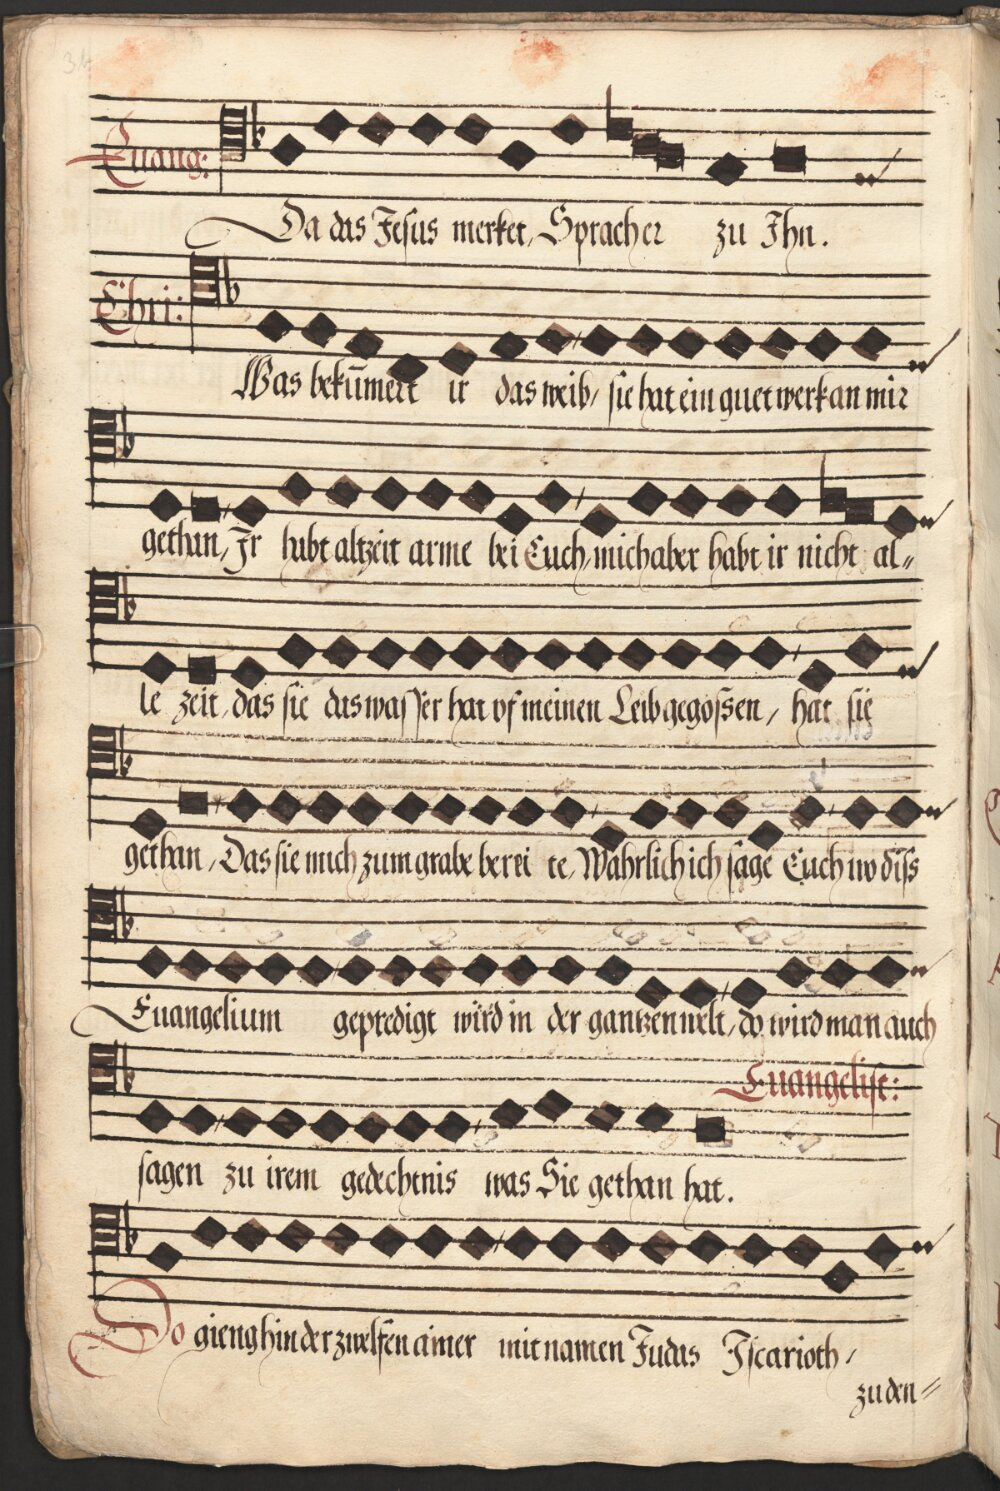 34
Euang:
Da das Jesus merket, Sprach er zu Ihn.
Chri:
Was bekümert ir das weib, sie hat ein guet werk an mir
gethan, Ir habt altzeit arme bei Euch, mich aber habt ir nicht al=
le zeit, das sie das wasser hat vf meinen Leib gegossen, hat sie
gethan, Das sie mich zum grabe berei te, Wahrlich ich sage Euch wo diss
Euangelium gepredigt wird in der gantzen welt, do wird man auch
Euangelist:
sagen zu irem gedechtnis was Sie gethan hat.
Do gieng hin der zwelfen ainer mit namen Judas Iscarioth,
zu den=